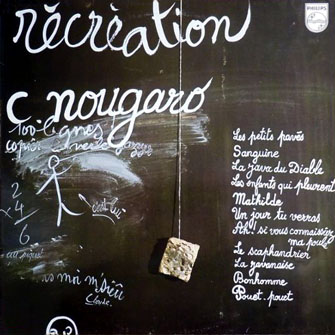 récréation
PHILIPS
c nougaro
100 lignes
copier
Les petits pavés
Sanguine
La Java du Diable
Les enfants qui pleurent
Mathilde
Un jour tu verras
Ah! si vous connaissiez
ma poule
Le scaphandrier
La pavanaise
Bonhomme
Pouet. pouet
c'est lui
2
x4
6
au piquet